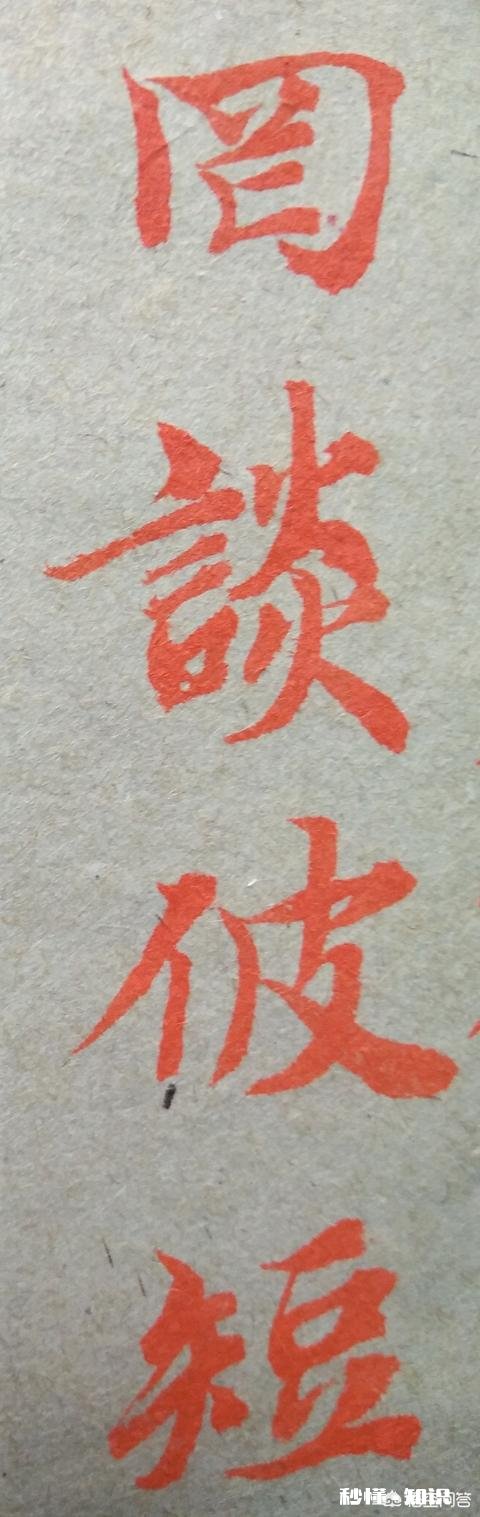 罔談彼短
秒懂 知识